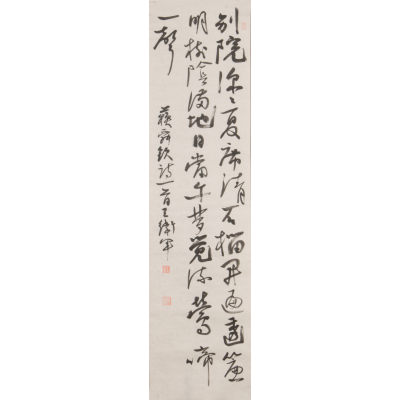 別院深〻夏席清石榴開遍透簾
明樹陰滿地日當午夢覺流鶯啼
一聲
蘇舜欽詩一首王衛軍